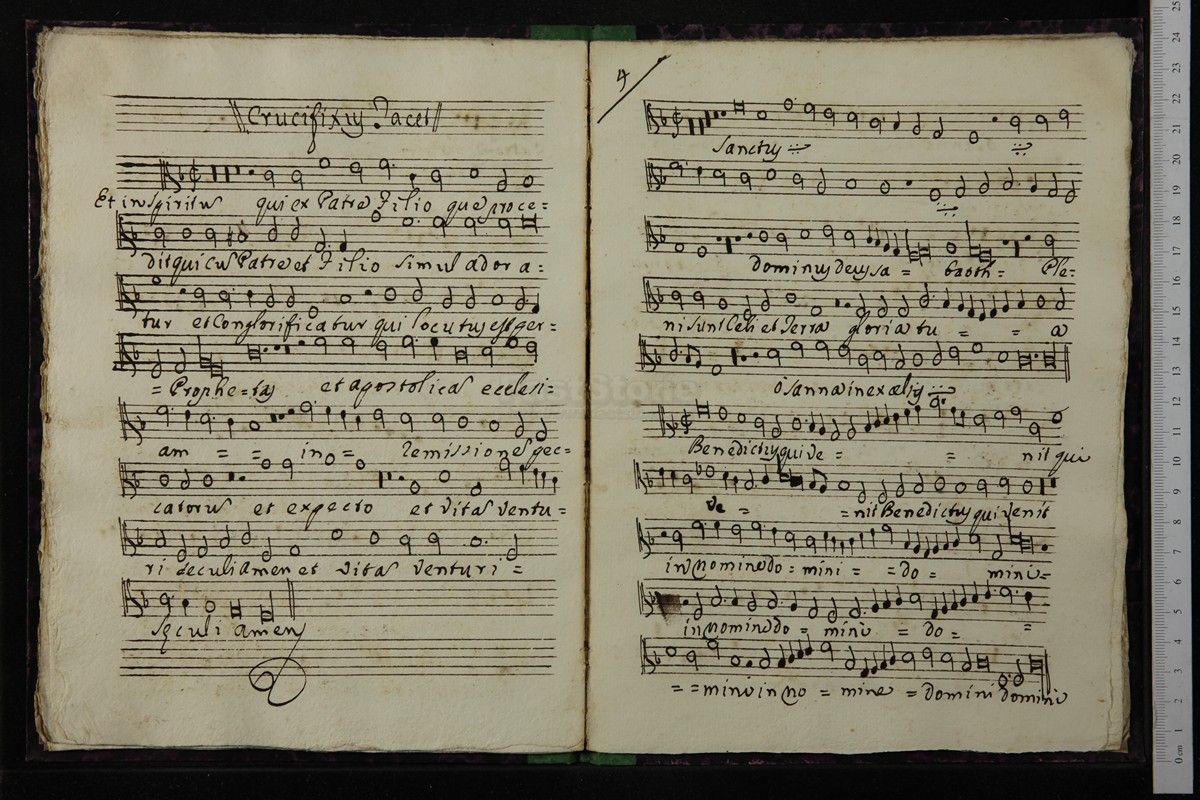 Crucifixus Jacet
Et in spiritus qui ex Patre Filio que proce=
dit qui cus Patre et Filio simul adora=
tur et conglorificatur qui locutus est per=
= Prophe=tas et apostolicas ecclesi=
am = = in = = Remissiones pec=
catorus et expecto et vitas ventu=
ri seculi Amen et vitas venturi =
seculi amen
4
Sanctus
dominus deus sa = baoth= Ple=
ni sunt Celi et Terra gloria tu = = a
osanna in excelsis
Benedictus qui ve = = nit qui
ve = = nit Benedictus qui venit
in nomine do = mini = = do = mini=
in nomine do = mini = do = =
= = mini in no = mine = domini domini
25
24
23
22
21
20
19
18
17
16
15
14
13
12
11
10
9
8
7
6
5
4
3
2
1
0 cm